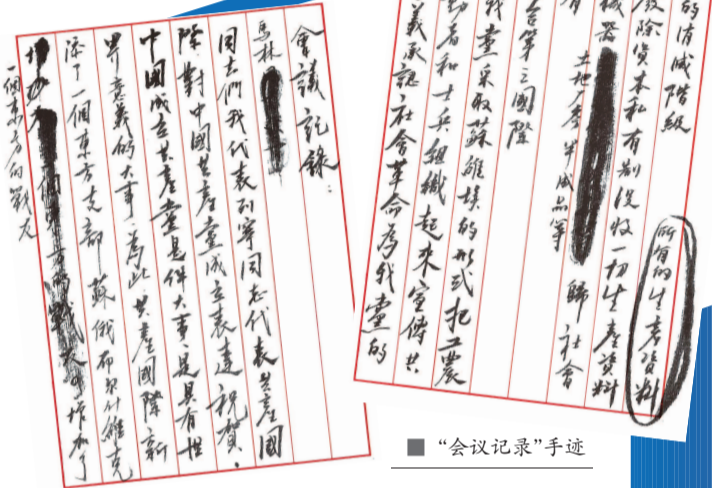 會議記錄：
馬林
同志們我代表列寧同志代表共產國
際．對中國共產黨成立表達祝賀．
中國成立共產黨是件大事，是具有世
界意義的大事，為此共產國際新
添了一個東方支部蘇俄布尔什維克
增加了
一個東方的戰友
的消滅階級
廢除資本私有制沒收一切生產資料
所有的生產資料
機器
土地
半成品等
歸社會
有
合第三國際
我黨采取蘇維埃的形式把工農
動者和士兵組織起來宣傳共
義承認社會革命為我黨的
■ “会议记录”手迹